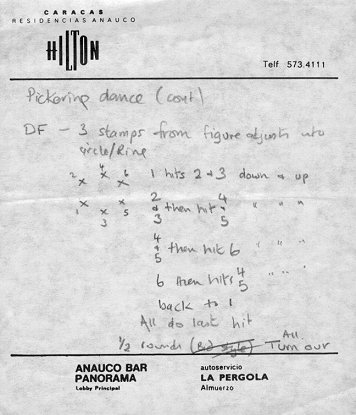 CARACAS
RESIDENCIAS ANAUCO
HILTON
Telf 573.4111
Pickering dance (cont)
DF - 3 stamps from figure adjusts into
circle/Ring
2 4 6 1 hits 2 & 3 down & up
x x x
x x x 2 & 3 then hit 4 & 5 " " "
1 3 5
4 & 5 then hit 6 " " "
6 then hits 4 & 5 " " "
back to 1
All do last hit
1/2 rounds All Turn out
ANAUCO BAR
PANORAMA
Lobby Principal
autoservicio
LA PERGOLA
Almuerzo